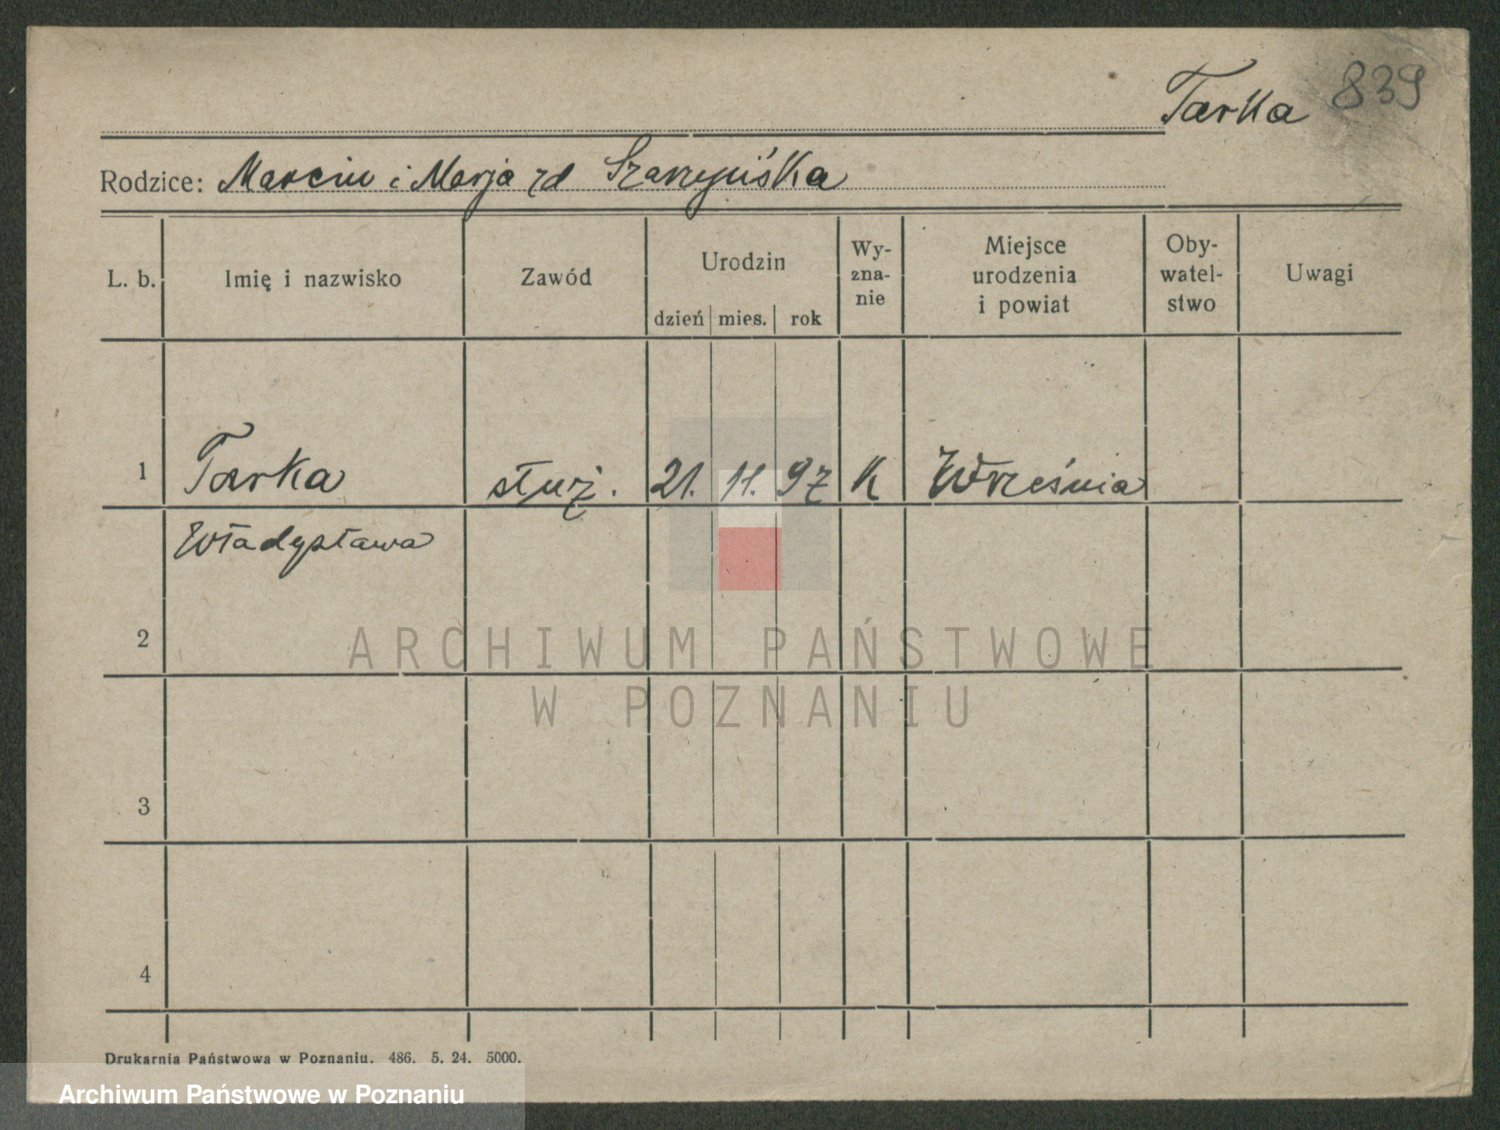 Tarka 839
Rodzice: Marcin i Marja zd
L. b. Imię i nazwisko Zawód Urodzin dzień mies. rok Wy-zna-nie Miejsce urodzenia i powiat Oby-watel-stwo Uwagi
1 Tarka służ. 21. 11. 97 K Września
Władysława
2
ARCHIWUM PAŃSTWOWE
W POZNANIU
3
4
Drukarnia Państwowa w Poznaniu. 486. 5. 24. 5000.
Archiwum Państwowe w Poznaniu